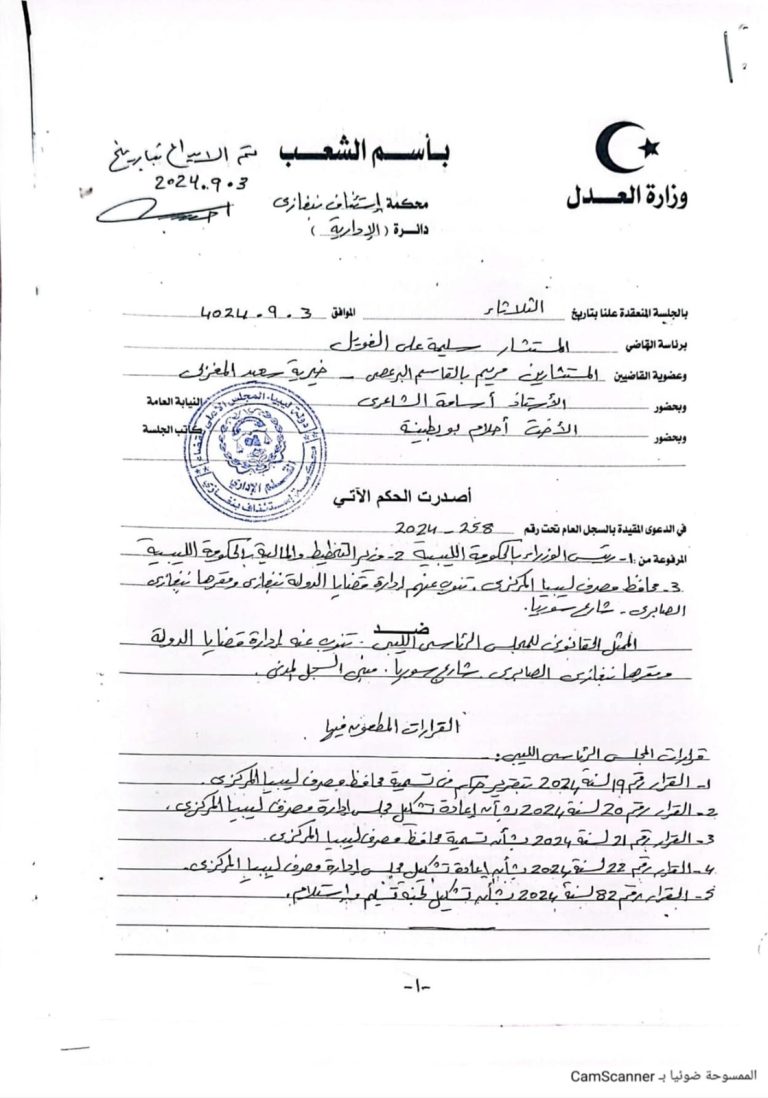 بأسم الشعب
تم الايداع بتاريخ
2024.9.3
وزارة العدل
محكمة إستئناف بنغازى
دائرة (الإدارية)
بالجلسة المنعقدة علنا بتاريخ الثلاثاء الموافق 4024.9.3
برئاسة القاضي المستشار سليمة على الفويل
وعضوية القاضيين المستشارين مريم بالقاسم البرعصى - خيرية سعيد المغربى
وبحضور الأستاذ أسامة الشاعرى النيابة العامة
وبحضور الأخت أحلام بوبطينة كاتب الجلسة
دولة ليبيا المجلس الأعلى للقضاء
القلم الإداري
محكمة إستئناف بنغازي
أصدرت الحكم الآتي
في الدعوى المقيدة بالسجل العام تحت رقم 258 - 2024
المرفوعة من: 1- رئيس الوزراء بالحكومة الليبية 2- وزير التخطيط والمالية بالحكومة الليبية
3- محافظ مصرف ليبيا المركزى. تنوب عنهم إدارة قضايا الدولة بنغازى ومقرها بنغازى
الصابرى - شارع سوريا.
ضد
الممثل القانونى للمجلس الرئاسى الليبى. تنوب عنه إدارة قضايا الدولة
ومقرها بنغازى الصابرى. شارع سوريا. مبنى السجل المدنى.
القرارات المطعون فيها
قرارات المجلس الرئاسى الليبى:-
1- القرار رقم 19 لسنة 2024 بتقرير حكم فى تسمية محافظ مصرف ليبيا المركزى.
2- القرار رقم 20 لسنة 2024 بشأن إعادة تشكيل مجلس إدارة مصرف ليبيا المركزى.
3- القرار رقم 21 لسنة 2024 بشأن تسمية محافظ مصرف ليبيا المركزى.
4- القرار رقم 22 لسنة 2024 بشأن إعادة تشكيل مجلس إدارة مصرف ليبيا المركزى.
5- القرار رقم 82 لسنة 2024 بشأن تشكيل لجنة تسليم وإستلام.
-1-
الممسوحة ضوئيا بـ CamScanner